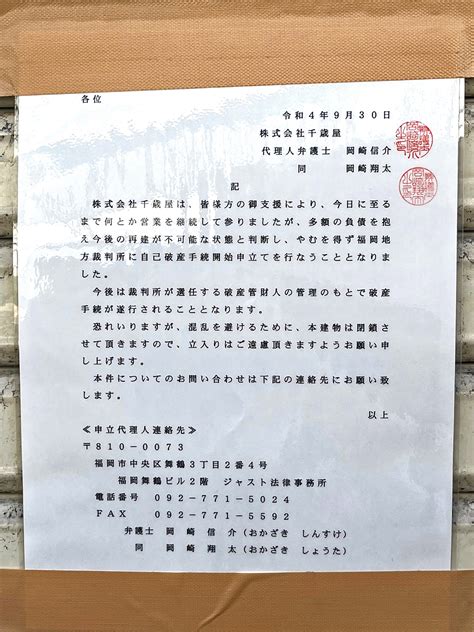 各位
令和4年9月30日
株式会社千歳屋
代理人弁護士　岡崎信介
同　　岡崎翔太
記
株式会社千歳屋は、皆様方の御支援により、今日に至る
まで何とか営業を継続して参りましたが、多額の負債を抱
え今後の再建が不可能な状態と判断し、やむを得ず福岡地
方裁判所に自己破産手続開始申立てを行なうこととなりま
した。
今後は裁判所が選任する破産管財人の管理のもとで破産
手続が遂行されることとなります。
恐れいりますが、混乱を避けるために、本建物は閉鎖さ
せて頂きますので、立入りはご遠慮頂きますようお願い申
し上げます。
本件についてのお問い合わせは下記の連絡先にお願い致
します。
以上
≪申立代理人連絡先≫
〒810-0073
福岡市中央区舞鶴3丁目2番4号
福岡舞鶴ビル2階　ジャスト法律事務所
電話番号　092-771-5024
FAX　092-771-5592
弁護士　岡崎　信介(おかざき　しんすけ)
同　岡崎　翔太(おかざき　しょうた)